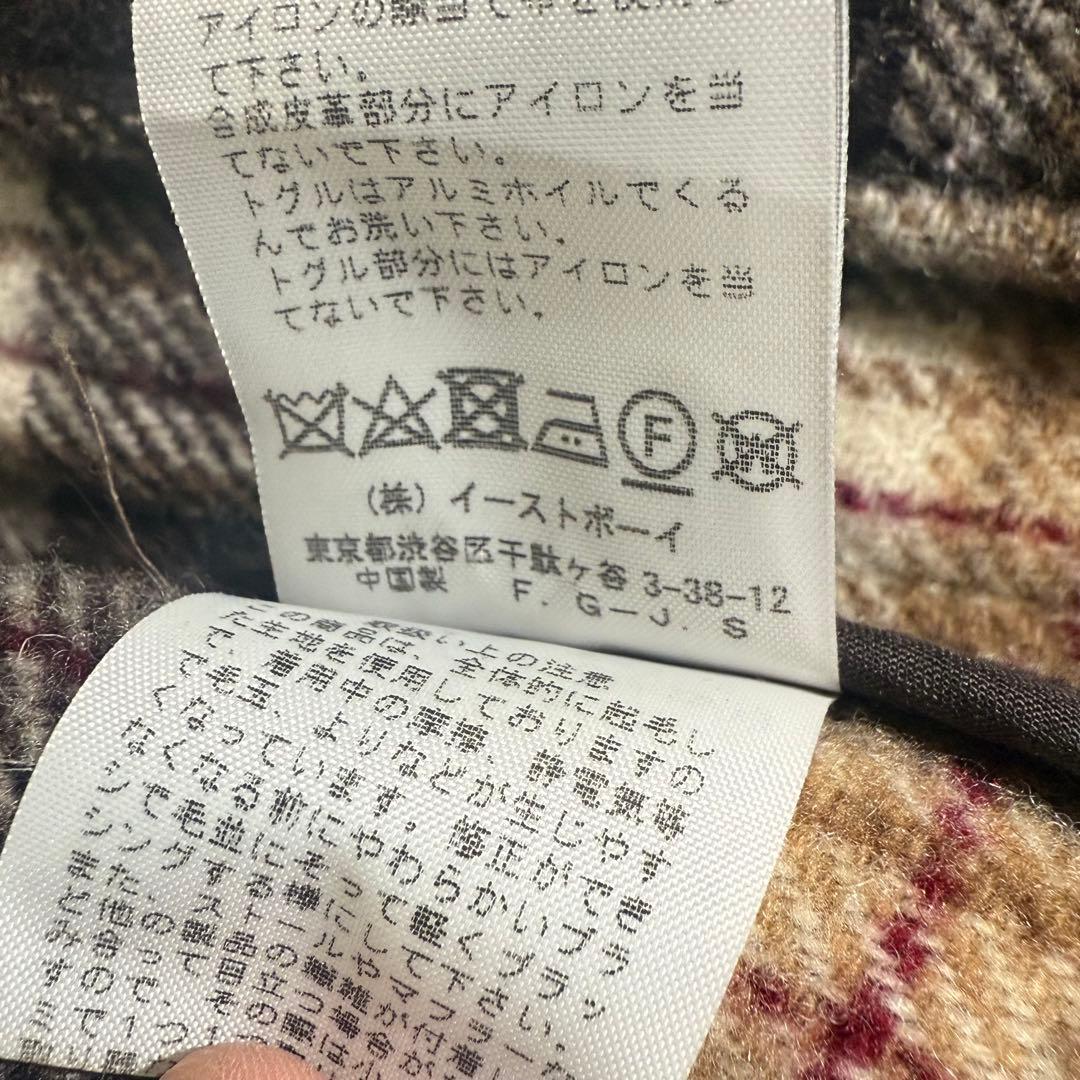 アイロンの際当て布を使用し
て下さい。
合成皮革部分にアイロンを当
てないで下さい。
トグルはアルミホイルでくる
んでお洗い下さい。
トグル部分にはアイロンを当
てないで下さい。
F
W
(株)イーストボーイ
東京都渋谷区千駄ヶ谷3-38-12
中国製 F.G-J.S
取扱い上の注意
この商品は、全体的に起毛し
た生地を使用しておりますの
で、着用中の摩擦、静電気等
で毛玉、よりなどが生じやす
くなっています。修正ができ
なくなる前にやわらかいブラ
シで毛並にそって軽くブラッ
シングする様にして下さい。
また、ストールやマフラー